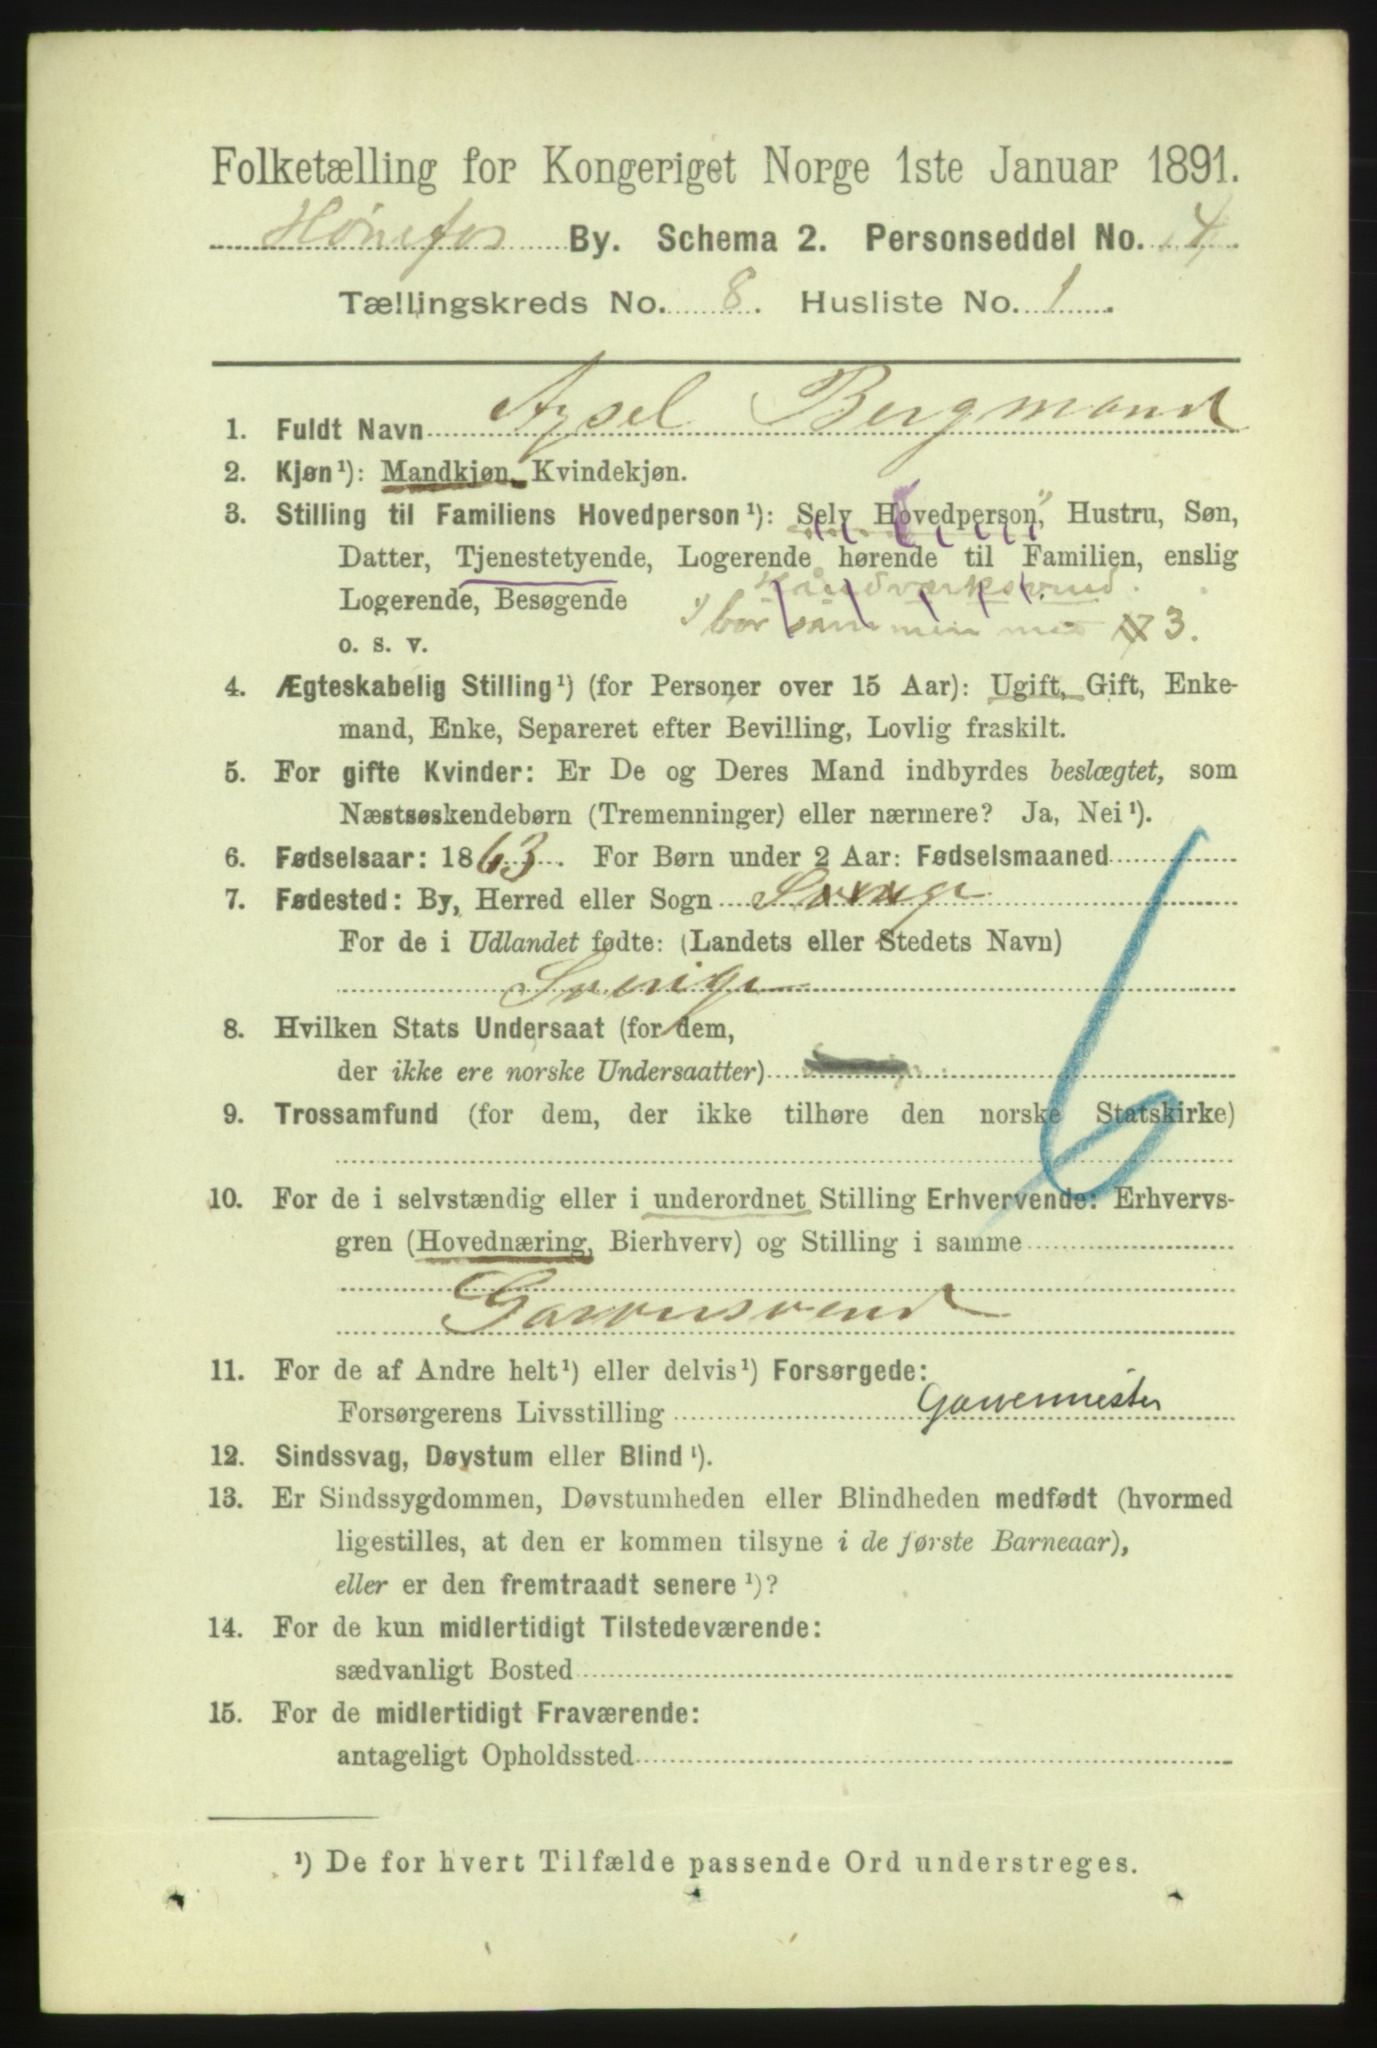 Folketælling for Kongeriget Norge 1ste Januar 1891.
Hønefos By. Schema 2. Personseddel No. 4
Tællingskreds No. 8. Husliste No. 1.
1. Fuldt Navn Axsel Bergmand
2. Kjøn¹): Mandkjøn, Kvindekjøn.
3. Stilling til Familiens Hovedperson¹): Selv Hovedperson, Hustru, Søn,
Datter, Tjenestetyende, Logerende hørende til Familien, enslig
Logerende, Besøgende Håndværksvend.
bor sammen med N 3.
o. s. v.
4. Ægteskabelig Stilling¹) (for Personer over 15 Aar): Ugift, Gift, Enke-
mand, Enke, Separeret efter Bevilling, Lovlig fraskilt.
5. For gifte Kvinder: Er De og Deres Mand indbyrdes beslægtet, som
Næstsøskendebørn (Tremenninger) eller nærmere? Ja, Nei¹).
6. Fødselsaar: 1863. For Børn under 2 Aar: Fødselsmaaned
7. Fødested: By, Herred eller Sogn
For de i Udlandet fødte: (Landets eller Stedets Navn)
Sverige
8. Hvilken Stats Undersaat (for dem,
der ikke ere norske Undersaatter)
9. Trossamfund (for dem, der ikke tilhøre den norske Statskirke)
10. For de i selvstændig eller i underordnet Stilling Erhvervende: Erhvervs-
gren (Hovednæring, Bierhverv) og Stilling i samme
Garversvend
11. For de af Andre helt¹) eller delvis¹) Forsørgede:
Forsørgerens Livsstilling Garvermester
12. Sindssvag, Døvstum eller Blind¹).
13. Er Sindssygdommen, Døvstumheden eller Blindheden medfødt (hvormed
ligestilles, at den er kommen tilsyne i de første Barneaar),
eller er den fremtraadt senere¹)?
14. For de kun midlertidigt Tilstedeværende:
sædvanligt Bosted
15. For de midlertidigt Fraværende:
antageligt Opholdssted
¹) De for hvert Tilfælde passende Ord understreges.